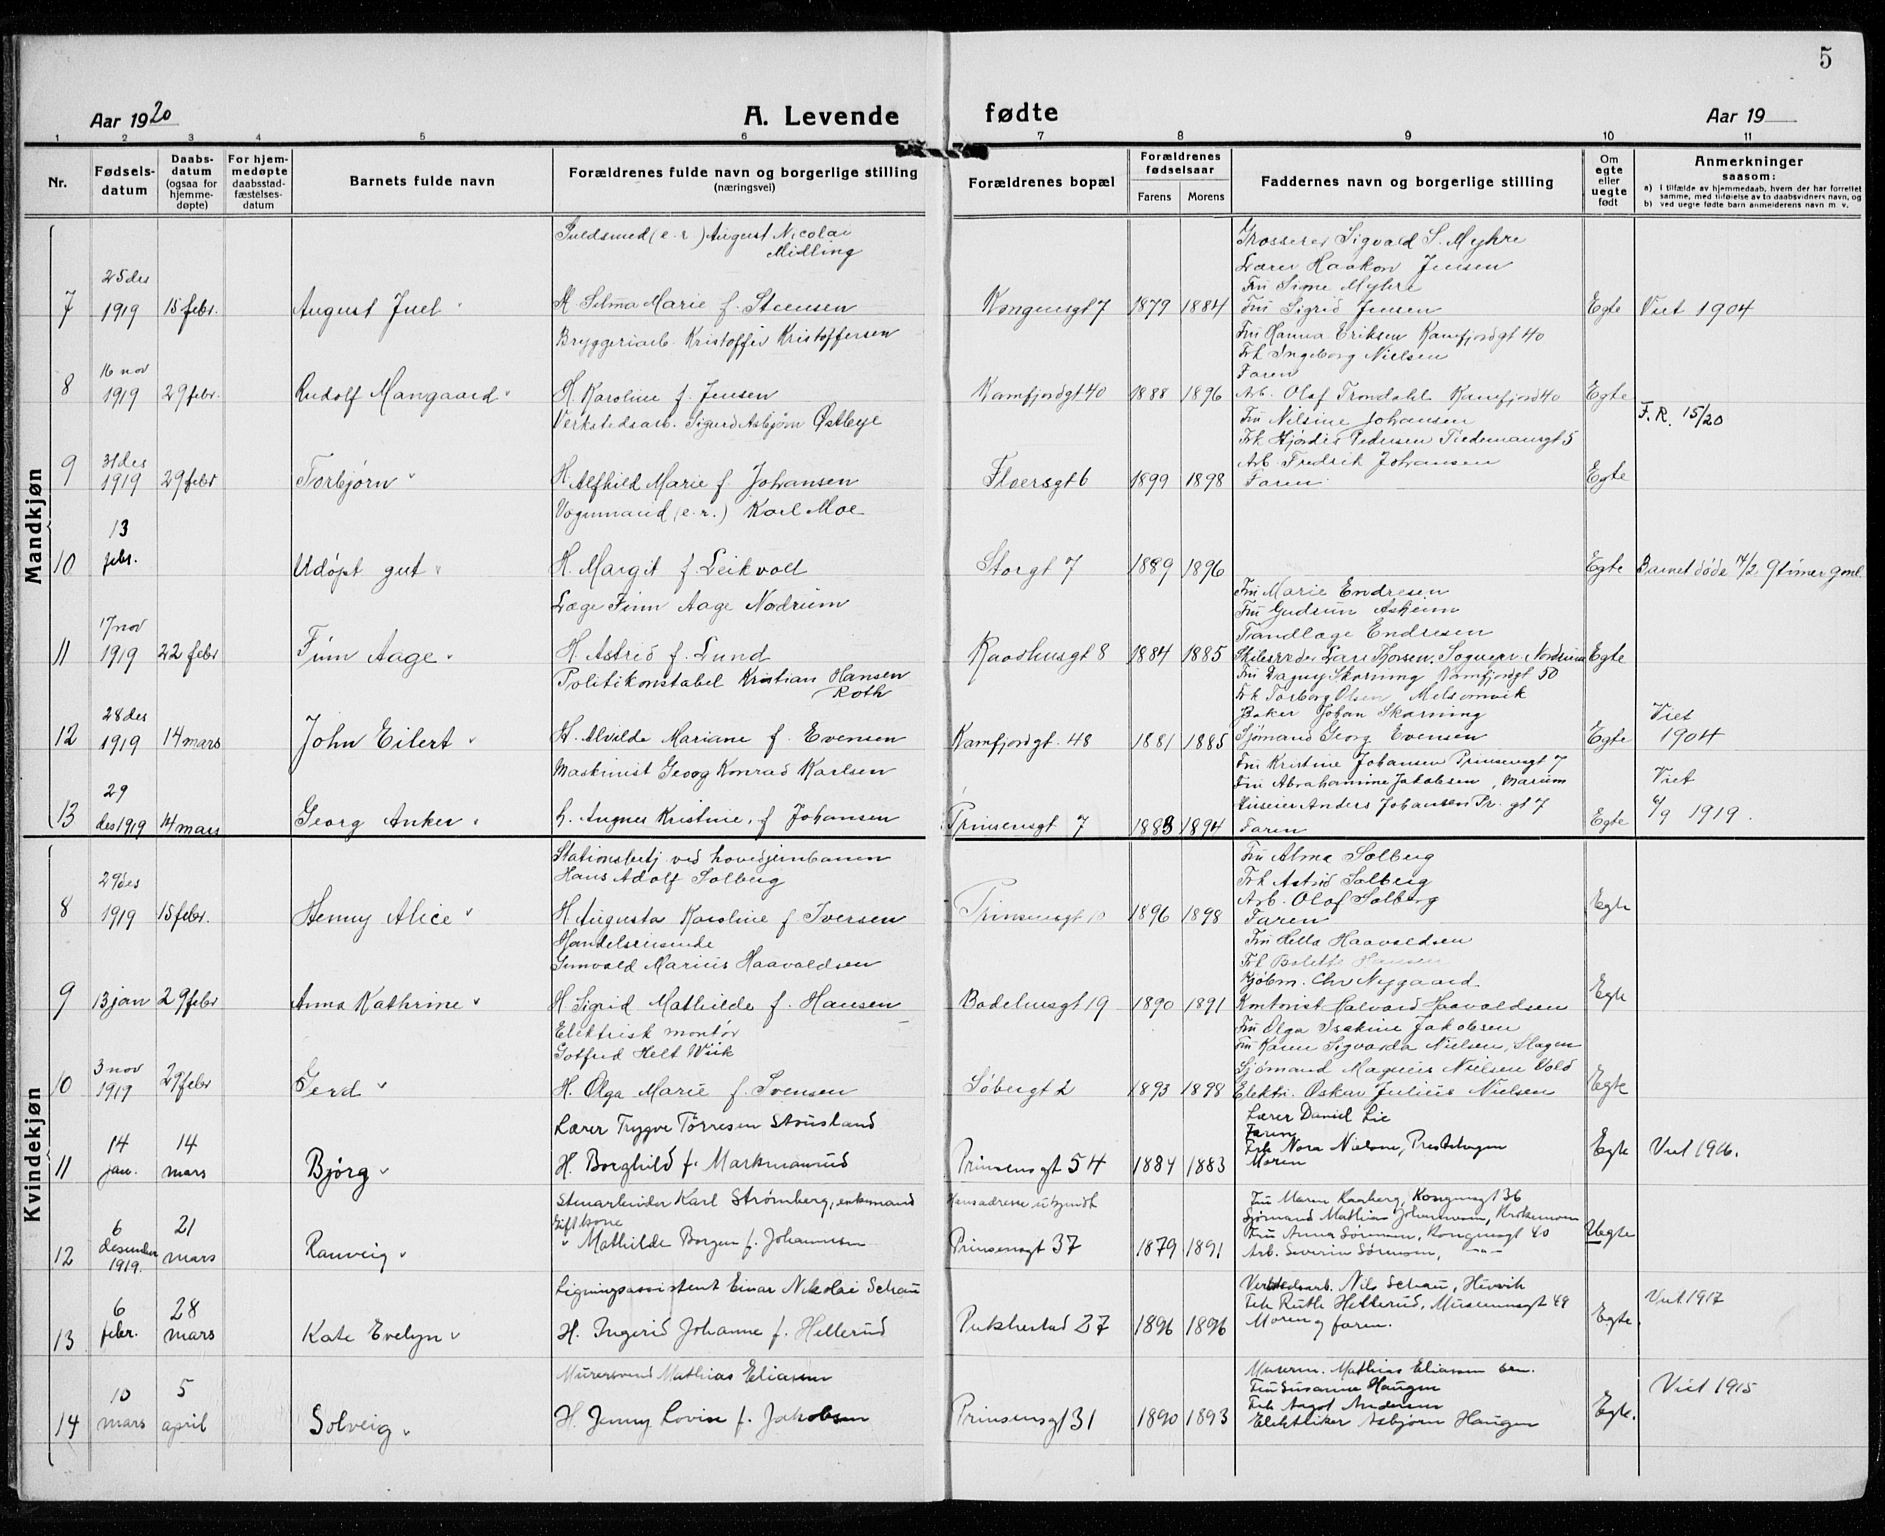 5
Aar 1920 A. Levende fødte Aar 19
1 2 3 4 5 6 7 8 9 10 11
Nr. Fødsels-datum Daabs-datum (ogsaa for hjemme-døpte) For hjem-medøpte daabsstad-fæstelses-datum Barnets fulde navn Forældrenes fulde navn og borgerlige stilling (næringsvei) Forældrenes bopæl Forældrenes fødselsaar Farens Morens Faddernes navn og borgerlige stilling Om egte eller uegte født Anmerkninger saasom:
a) I tilfælde av hjemmedaab, hvem der har forrettet samme, med tilføielse av to daabsvidners navn, og
b) ved uegte fødte barn anmelderens navn m. v.
Mandkjøn
Guldsmed (e. r.) August Nicolai Midling
Grosserer Sigvald S. Myhre
Lærer Haakon Jensen
Fru Signe Myhre
7 25 des 1919 15 febr. August Juel H. Selma Marie f. Steensen Kongensgt 7 1879 1884 Fru Sigrid Jensen Egte Viet 1904
Bryggeriarb. Kristoffer Kristoffersen
Fru Hanna Eriksen Kamfjordgt 40
Frk Ingeborg Nielsen
Faren
8 16 nov 1919 29 febr. Rudolf Mangaard H. Karoline f. Jensen Kamfjordgt 40 1888 1896 Arb. Olaf Trondahl Kamfjord 40 Egte
F. R. 15/20
Verkstedsarb. Sigurd Asbjørn Østbye
Fru Nilsine Johansen
Frk Hjørdis Pedersen Tidemansgt 5
Arb. Fredrik Johansen
9 31 des 1919 29 febr Torbjørn H. Alfhild Marie f. Johansen Floersgt 6 1899 1898 Faren Egte
Vognmand (e. r.) Karl Moe
10 13 febr. Udøpt gut H. Margit f. Leikvoll Storgt 7 1889 1896 Egte Barnet døde 14/2 9 timer gml.
Læge Finn Aage Nodrum
Fru Marie Endresen
Fru Gudrun Askeim
Tandlæge Endresen
11 17 nov 1919 22 febr Finn Aage H. Astrid f. Lund Raadhusgt 8 1884 1885 Skibsreder Lars Thorsen. Egte
Politikonstabel Kristian Hansen Roth
Fru Dagny Skorning Kamfjordgt 50
Frk Torborg Olsen Melsomvik
Baker Johan Skorning
12 28 des 1919 14 mars John Eilert H. Alvilde Mariane f. Evensen Kamfjordgt. 48 1881 1885 Sjømand Georg Evensen Egte Viet 1904
Maskinist Georg Konrad Karlsen
Fru Kristine Johansen Prinsensgt 7
Fru Abrahamine Jakobsen, Barum
Anders Johansen Pr. gt 7
13 29 des 1919 14 mars Georg Anker H. Augnes Kristine, f Johansen Prinsensgt 7 1883 1894 Faren Egte Viet 6/9 1919.
Kvindekjøn
Stationsbetj ved hovedjernbanen
Hans Adolf Solberg
Fru Alma Solberg
Frk Astrid Solberg
Arb. Olaf Solberg
8 29 des 1919 15 febr. Henny Alice H Augusta Karoline f Iversen Prinsensgt 10 1896 1898 Faren Egte
Handelsreisende
Gunvald Marius Haavaldsen
Fru Hella Haavaldsen
Frk Bolette Hansen
Kjøbm. Chr Nygaard
9 13 jan 29 febr Anna Kathrine H Sigrid Mathilde f. Hansen Bodehusgt 19 1890 1891 Kontorist Halvard Haavaldsen Egte
Elektrisk montør
Gotfred Helt Wiik
Fru Olga Isakine Jakobsen
Fru Karen Sigvarda Nielsen, Slagen
Sjømand Magnus Nielsen Vold
10 3 nov 1919 29 febr Gerd H. Olga Marie f. Svensen Søbergt 2 1893 1898 Elektri. Oskar Julius Nielsen Egte
Lærer Trygve Tørresen Strusland
Lærer Daniel Lie
Faren
Frk Nora Nielsen, Prestehagen
11 14 jan. 14 mars Bjørg H. Borghild f. Markmanrud Prinsensgt 54 1884 1883 Moren Egte Viet 1916.
Stenarbeider Karl Strømberg, enkemand
Hans adresse ukjendt
Gift kone
Fru Maren Raaberg, Kongensgt 36
Sjømand Mathias Johannesen,
Fru Anna Sørensen, Kongensgt 40
12 6 desember 1919. 21 mars Ranveig " Mathilde Borgen f. Johannesen Prinsensgt 37 1879 1891 Arb. Severin Sørensen, -"- Uegte
Ligningsassistent Einar Nikolai Schau
Verkstedsarb. Nils Schau, Husvik
Frk Ruth Hellerud, Museumsgt 49
13 6 febr. 28 mars Kate Evelyn H. Ingerid Johanne f. Hellerud Pukkestad 27 1896 1896 Moren og faren. Egte Viet 1917
Murersvend Mathias Eliassen
Murerm. Mathias Eliassen sen.
Fru Susanne Haugen
Frk Aagot Andersen
14 10 mars 5 april Solveig H. Jenny Lovise f. Jakobsen Prinsensgt 31 1890 1893 Elektriker Asbjørn Haugen Egte. Viet 1915